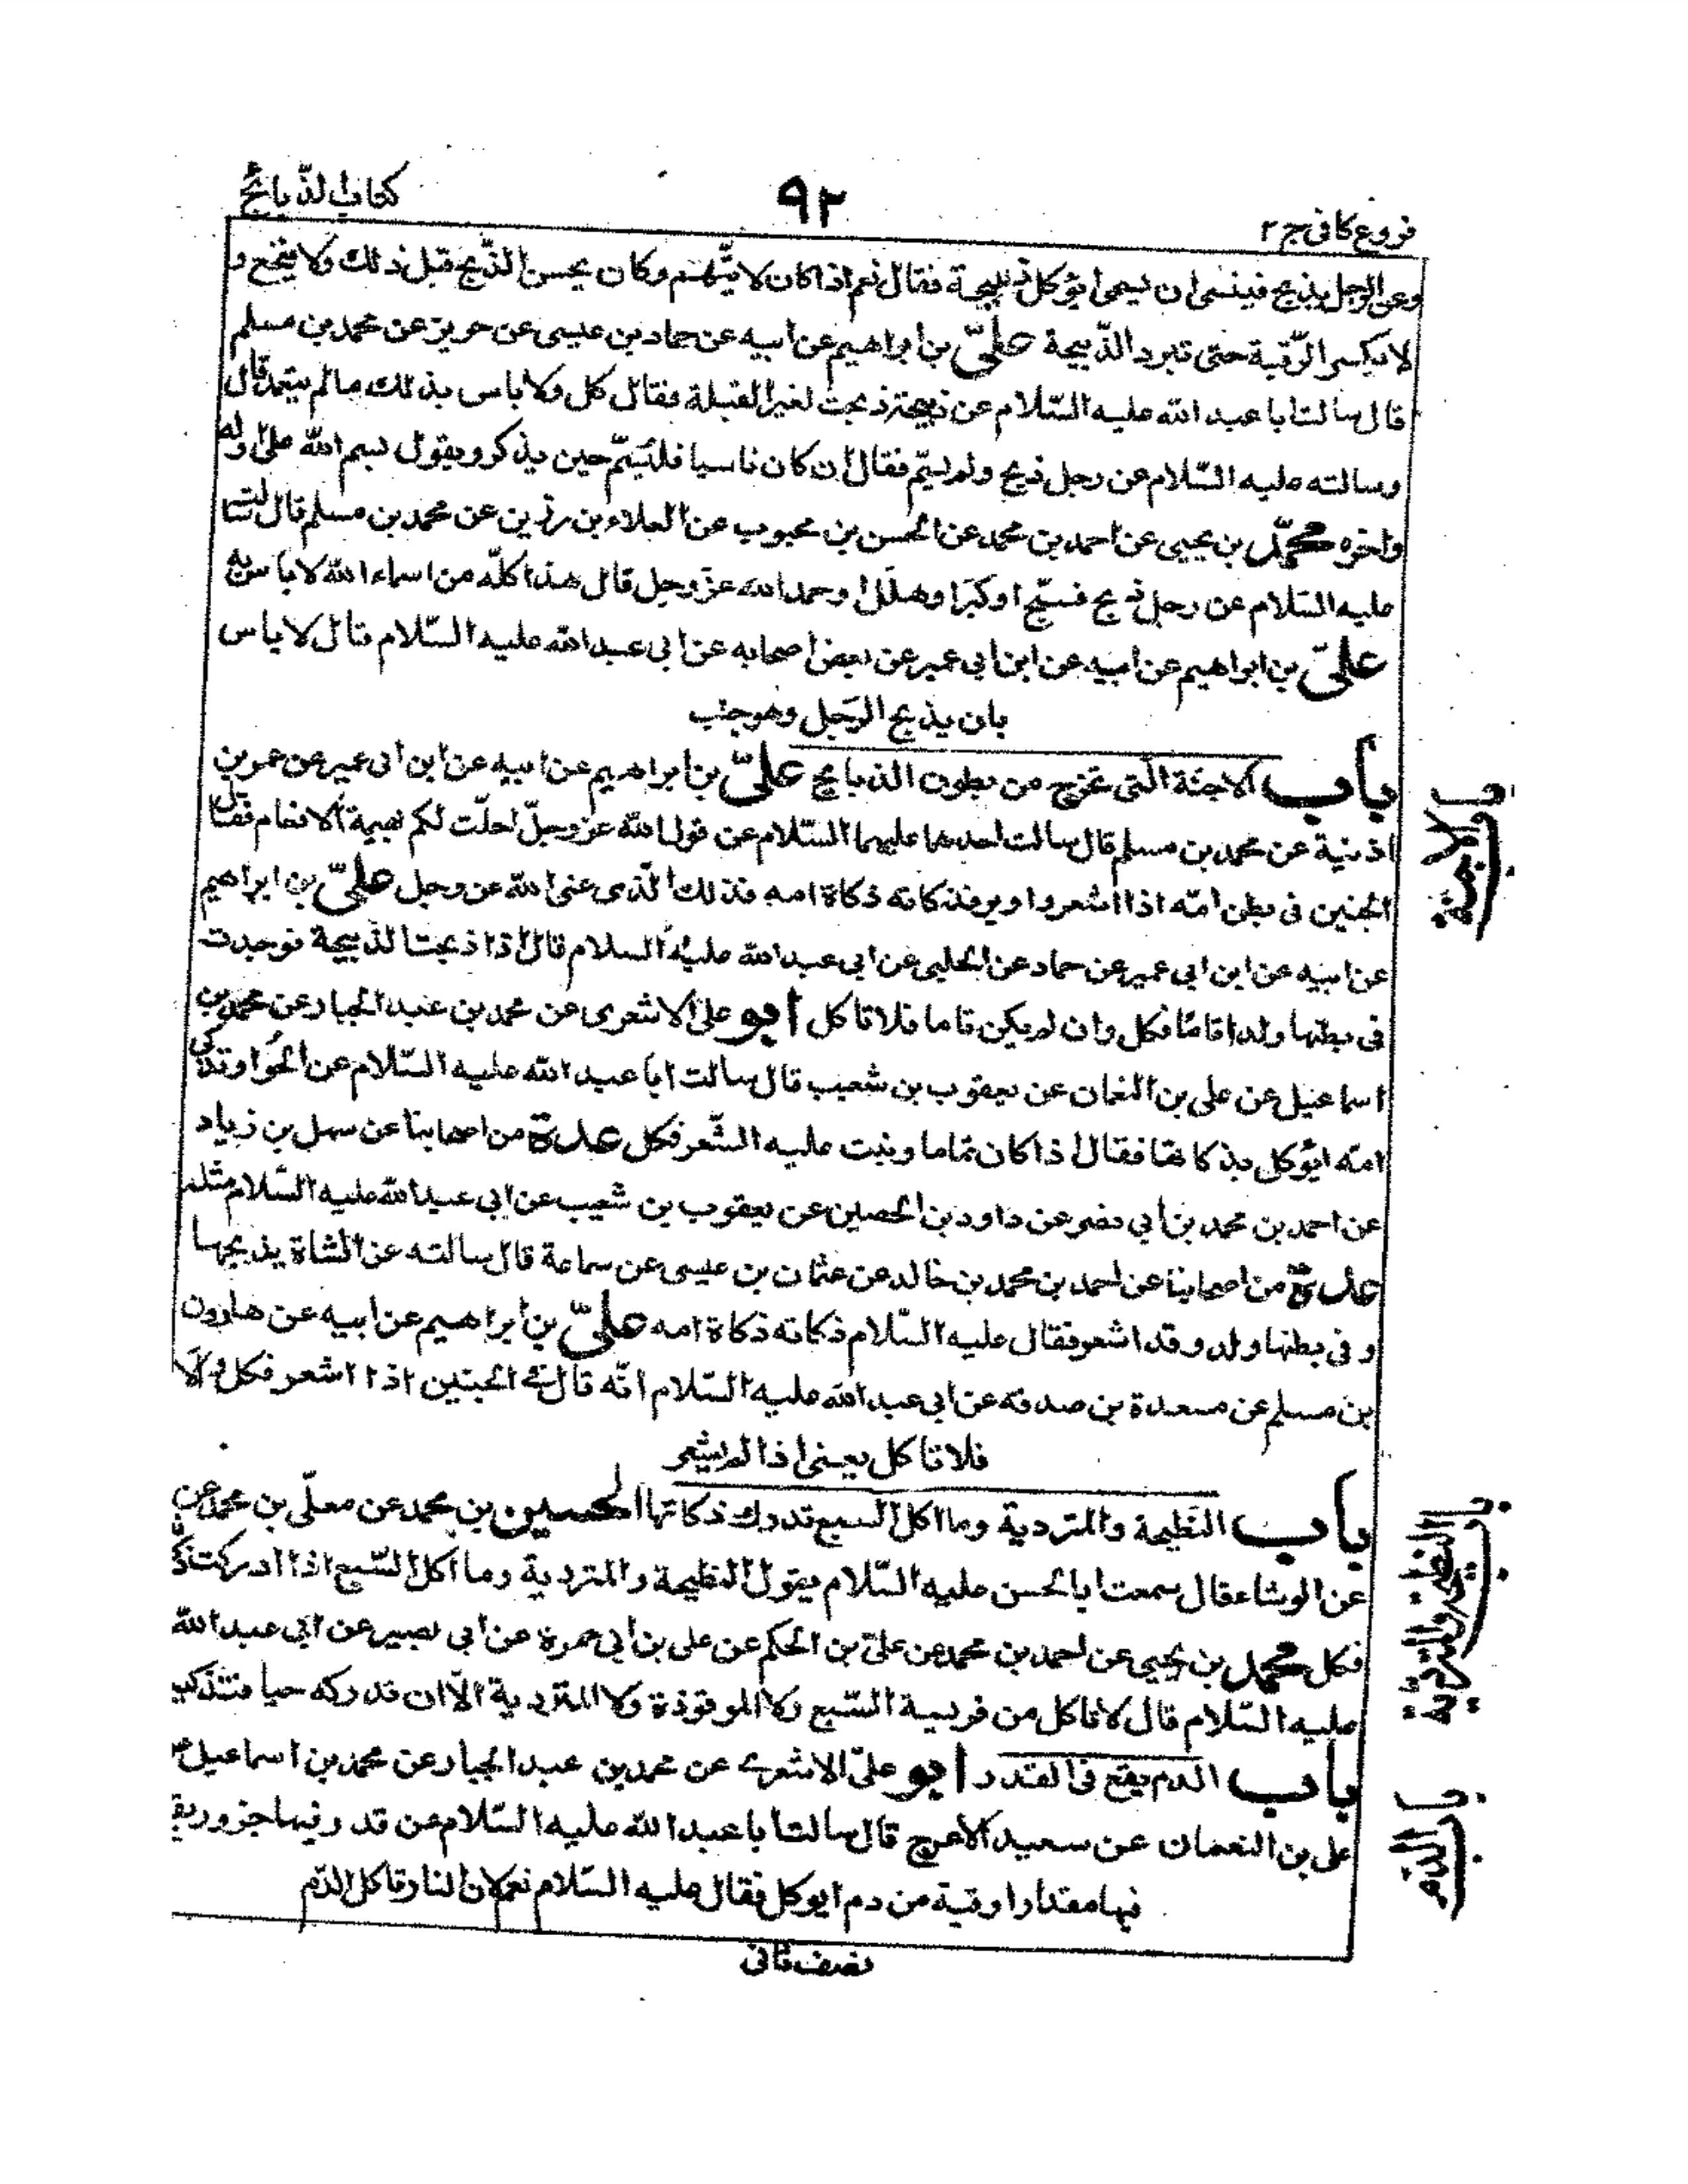 فروع كافى ج ٢
٩٢
كتاب الذّبائح
وعن الرجل يذبح فينسى ان يسمى ايؤكل ذبيحة فقال نعم اذا كان لا يتّهم وكان يحسن الذّبح قبل ذلك ولا ينخع و
لا يكسر الرّقبة حتى تبرد الذّبيحة علىّ بن ابراهيم عن ابيه عن حماد بن عيسى عن حريز عن محمد بن مسلم
قال سالت ابا عبد الله عليه السّلام عن ذبيحة ذبحت لغير القبلة فقال كل ولا باس بذلك ما لم يتعمد قال
وسالته عليه السّلام عن رجل ذبح ولم يسمّ فقال ان كان ناسيا فليسمّ حين يذكر ويقول بسم الله على اوله
واخره محمّد بن يحيى عن احمد بن محمد عن الحسن بن محبوب عن العلاء بن رزين عن محمد بن مسلم قال سالته
عليه السّلام عن رجل ذبح فسبّح او كبّر او هلّل او حمد الله عزّ وجل قال هذا كلّه من اسماء الله لا باس به
علىّ بن ابراهيم عن ابيه عن ابن ابى عمير عن بعض اصحابه عن ابى عبد الله عليه السّلام قال لا باس
بان يذبح الرّجل وهو جنب
باب الاجنّة الّتى تخرج من بطون الذبايح علىّ بن ابراهيم عن ابيه عن ابن ابى عمير عن عمر بن
اذينة عن محمد بن مسلم قال سالت احدهما عليهما السّلام عن قول الله عزّ وجلّ احلّت لكم بهيمة الانعام فقال
الجنين فى بطن امّه اذا اشعر واوبر فذكاته ذكاة امه فذلك الّذى عنى الله عز وجل علىّ بن ابراهيم
عن ابيه عن ابن ابى عمير عن حماد عن الحلبى عن ابى عبد الله عليه السلام قال اذا ذبحت الذبيحة فوجدت
فى بطنها ولدا تامّا فكل وان لم يكن تاما فلا تاكل ابو على الاشعرى عن محمد بن عبد الجبار عن محمد بن
اسماعيل عن على بن النعمان عن يعقوب بن شعيب قال سالت ابا عبد الله عليه السّلام عن الحوار تذكى
امّه ايؤكل بذكاتها فقال اذا كان تماما ونبت عليه الشّعر فكل عدة من اصحابنا عن سهل بن زياد
عن احمد بن محمد بن ابى نصر عن داود بن الحصين عن يعقوب بن شعيب عن ابى عبد الله عليه السّلام مثله
عدة من اصحابنا عن احمد بن محمد بن خالد عن عثمان بن عيسى عن سماعة قال سالته عن الشاة يذبحها
و فى بطنها ولد و قد اشعر فقال عليه السّلام ذكاته ذكاة امه علىّ بن ابراهيم عن ابيه عن هارون
بن مسلم عن مسعدة بن صدقه عن ابى عبد الله عليه السّلام انّه قال فى الجنين اذا اشعر فكل والّا
فلا تاكل يعنى اذا لم يشعر
باب النّطيحة والمتردية وما اكل السبع تدرك ذكاتها الحسين بن محمد عن معلّى بن محمد عن
عن الوشاء قال سمعت ابا الحسن عليه السّلام يقول النطيحة والمتردية وما اكل السّبع اذا ادركت ذكاته
فكل محمد بن يحيى عن احمد بن محمد عن علىّ بن الحكم عن على بن ابى حمزة عن ابى بصير عن ابى عبد الله
عليه السّلام قال لا تاكل من فريسة السّبع ولا الموقوذة ولا المتردية الّا ان تدركه حيا فتذكيه
باب الدم يقع فى القدر ابو علىّ الاشعرى عن محمد بن عبد الجبار عن محمد بن اسماعيل عن
على بن النعمان عن سعيد الاعرج قال سالت ابا عبد الله عليه السّلام عن قدر فيها جزور يقع
فيها مقدار اوقية من دم ايؤكل فقال عليه السّلام نعم لان النار تاكل الدّم
نصف ثانى
باب الاجنة
باب النطيحة والمتردية
باب الدّم